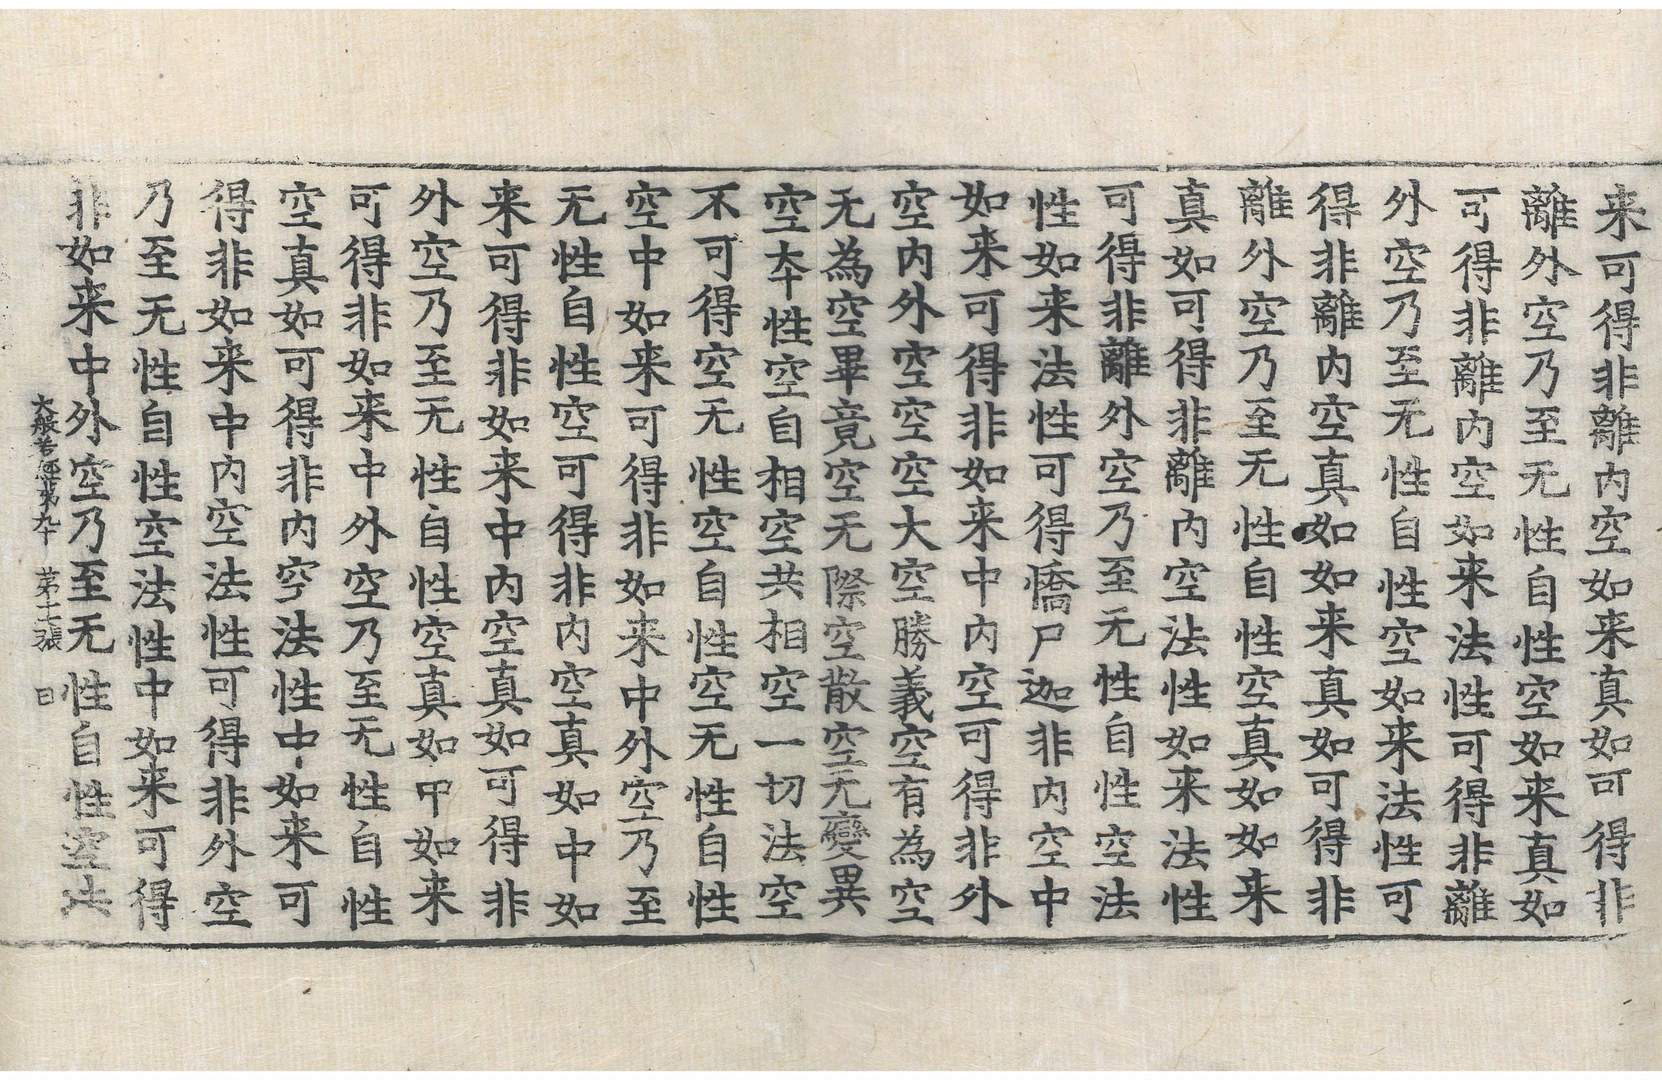 来可得非離内空如来真如可得非
離外空乃至无性自性空如来真如
可得非離内空如来法性可得非離
外空乃至无性自性空如来法性可
得非離内空真如如来真如可得非
離外空乃至无性自性空真如如来
真如可得非離内空法性如来法性
可得非離外空乃至无性自性空法
性如来法性可得憍尸迦非内空中
如来可得非如来中内空可得非外
空内外空空空大空勝義空有為空
无為空畢竟空无際空散空无變異
空夲性空自相空共相空一切法空
不可得空无性空自性空无性自性
空中如来可得非如来中外空乃至
无性自性空可得非内空真如中如
来可得非如来中内空真如可得非
外空乃至无性自性空真如中如来
可得非如来中外空乃至无性自性
空真如可得非内空法性中如来可
得非如来中内空法性可得非外空
乃至无性自性空法性中如来可得
非如来中外空乃至无性自性空法
大般若經第九十 第十七張 日